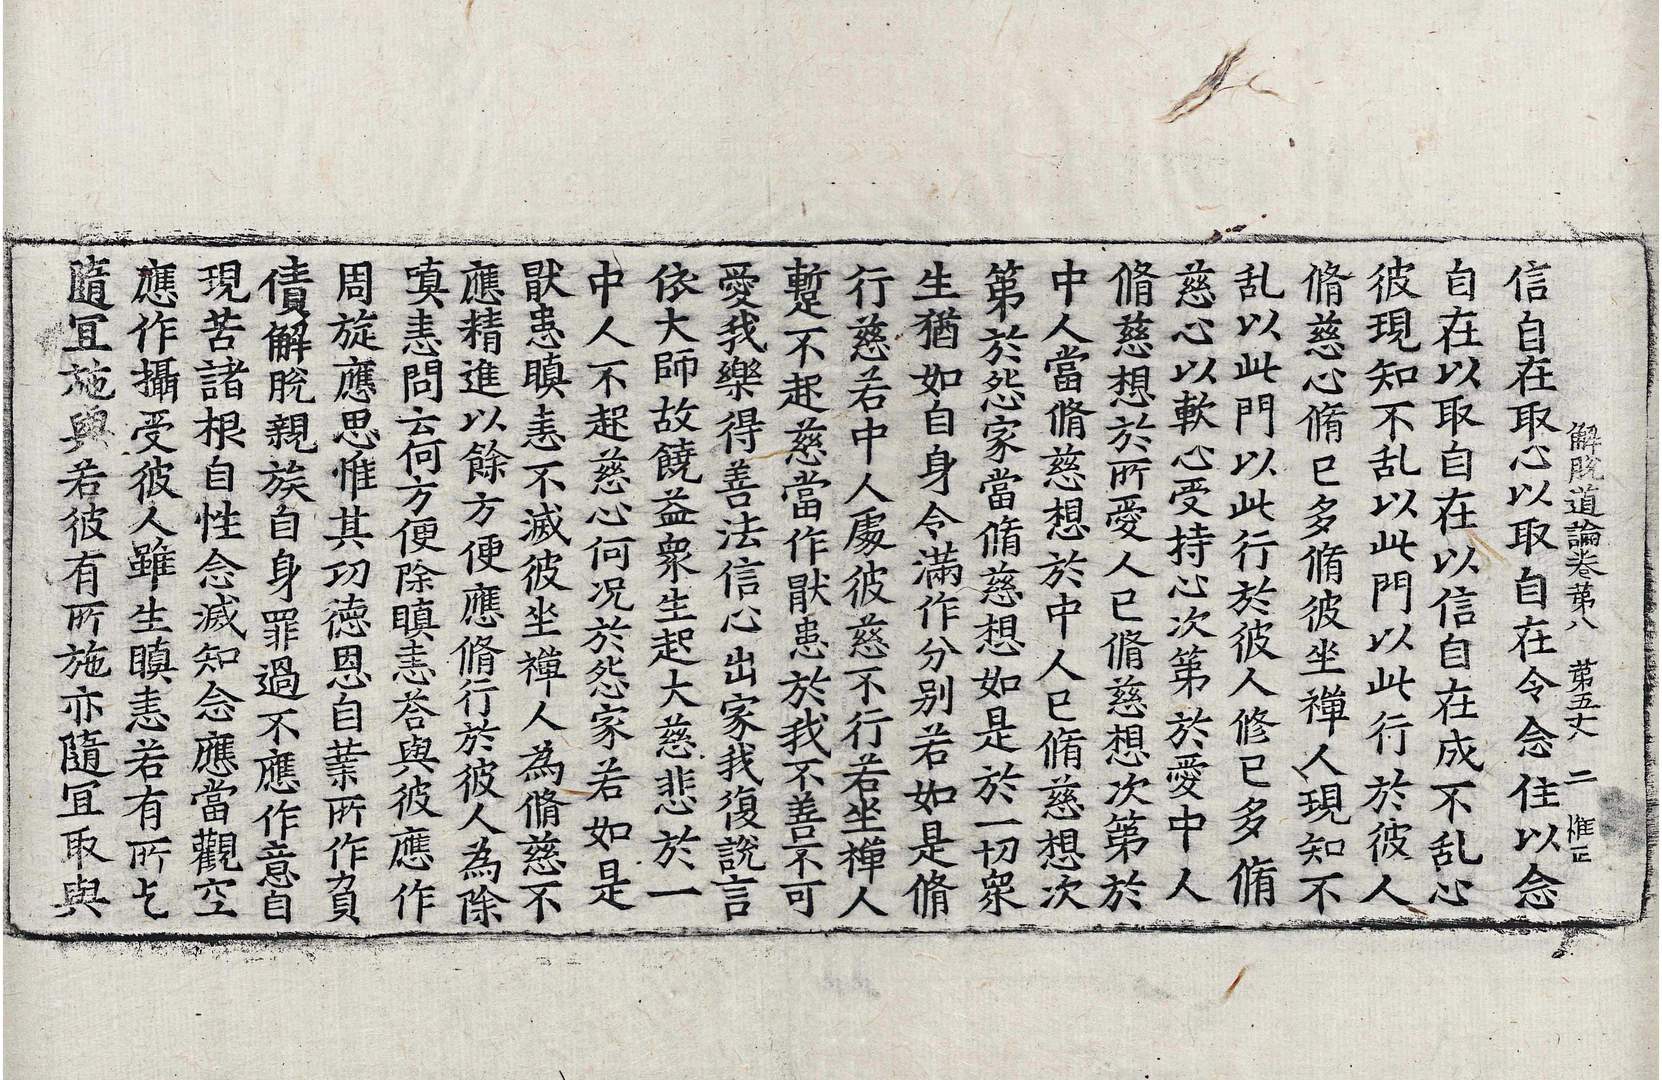 解脫道論卷苐八　苐五丈　二　惟正
信自在取心以取自在令念住以念
自在以取自在以信自在成不乱心
彼現知不乱以此門以此行於彼人
脩慈心脩已多脩彼坐禪人現知不
乱以此門以此行於彼人修已多脩
慈心以軟心受持心次第於愛中人
脩慈想於所愛人已脩慈想次第於
中人當脩慈想於中人已脩慈想次
第於怨家當脩慈想如是於一切衆
生猶如自身令滿作分別若如是脩
行慈若中人處彼慈不行若坐禪人
蹔不起慈當作猒患於我不善不可
愛我樂得善法信心出家我復說言
依大師故饒益衆生起大慈悲於一
中人不起慈心何况於怨家若如是
猒患瞋恚不滅彼坐禪人為脩慈不
應精進以餘方便應脩行於彼人為除
嗔恚問云何方便除瞋恚荅與彼應作
周旋應思惟其功德恩自業所作負
債解脫親族自身罪過不應作意自
現苦諸根自性念滅知念應當觀空
應作攝受彼人雖生瞋恚若有所乞
隨冝施與若彼有所施亦隨冝取與